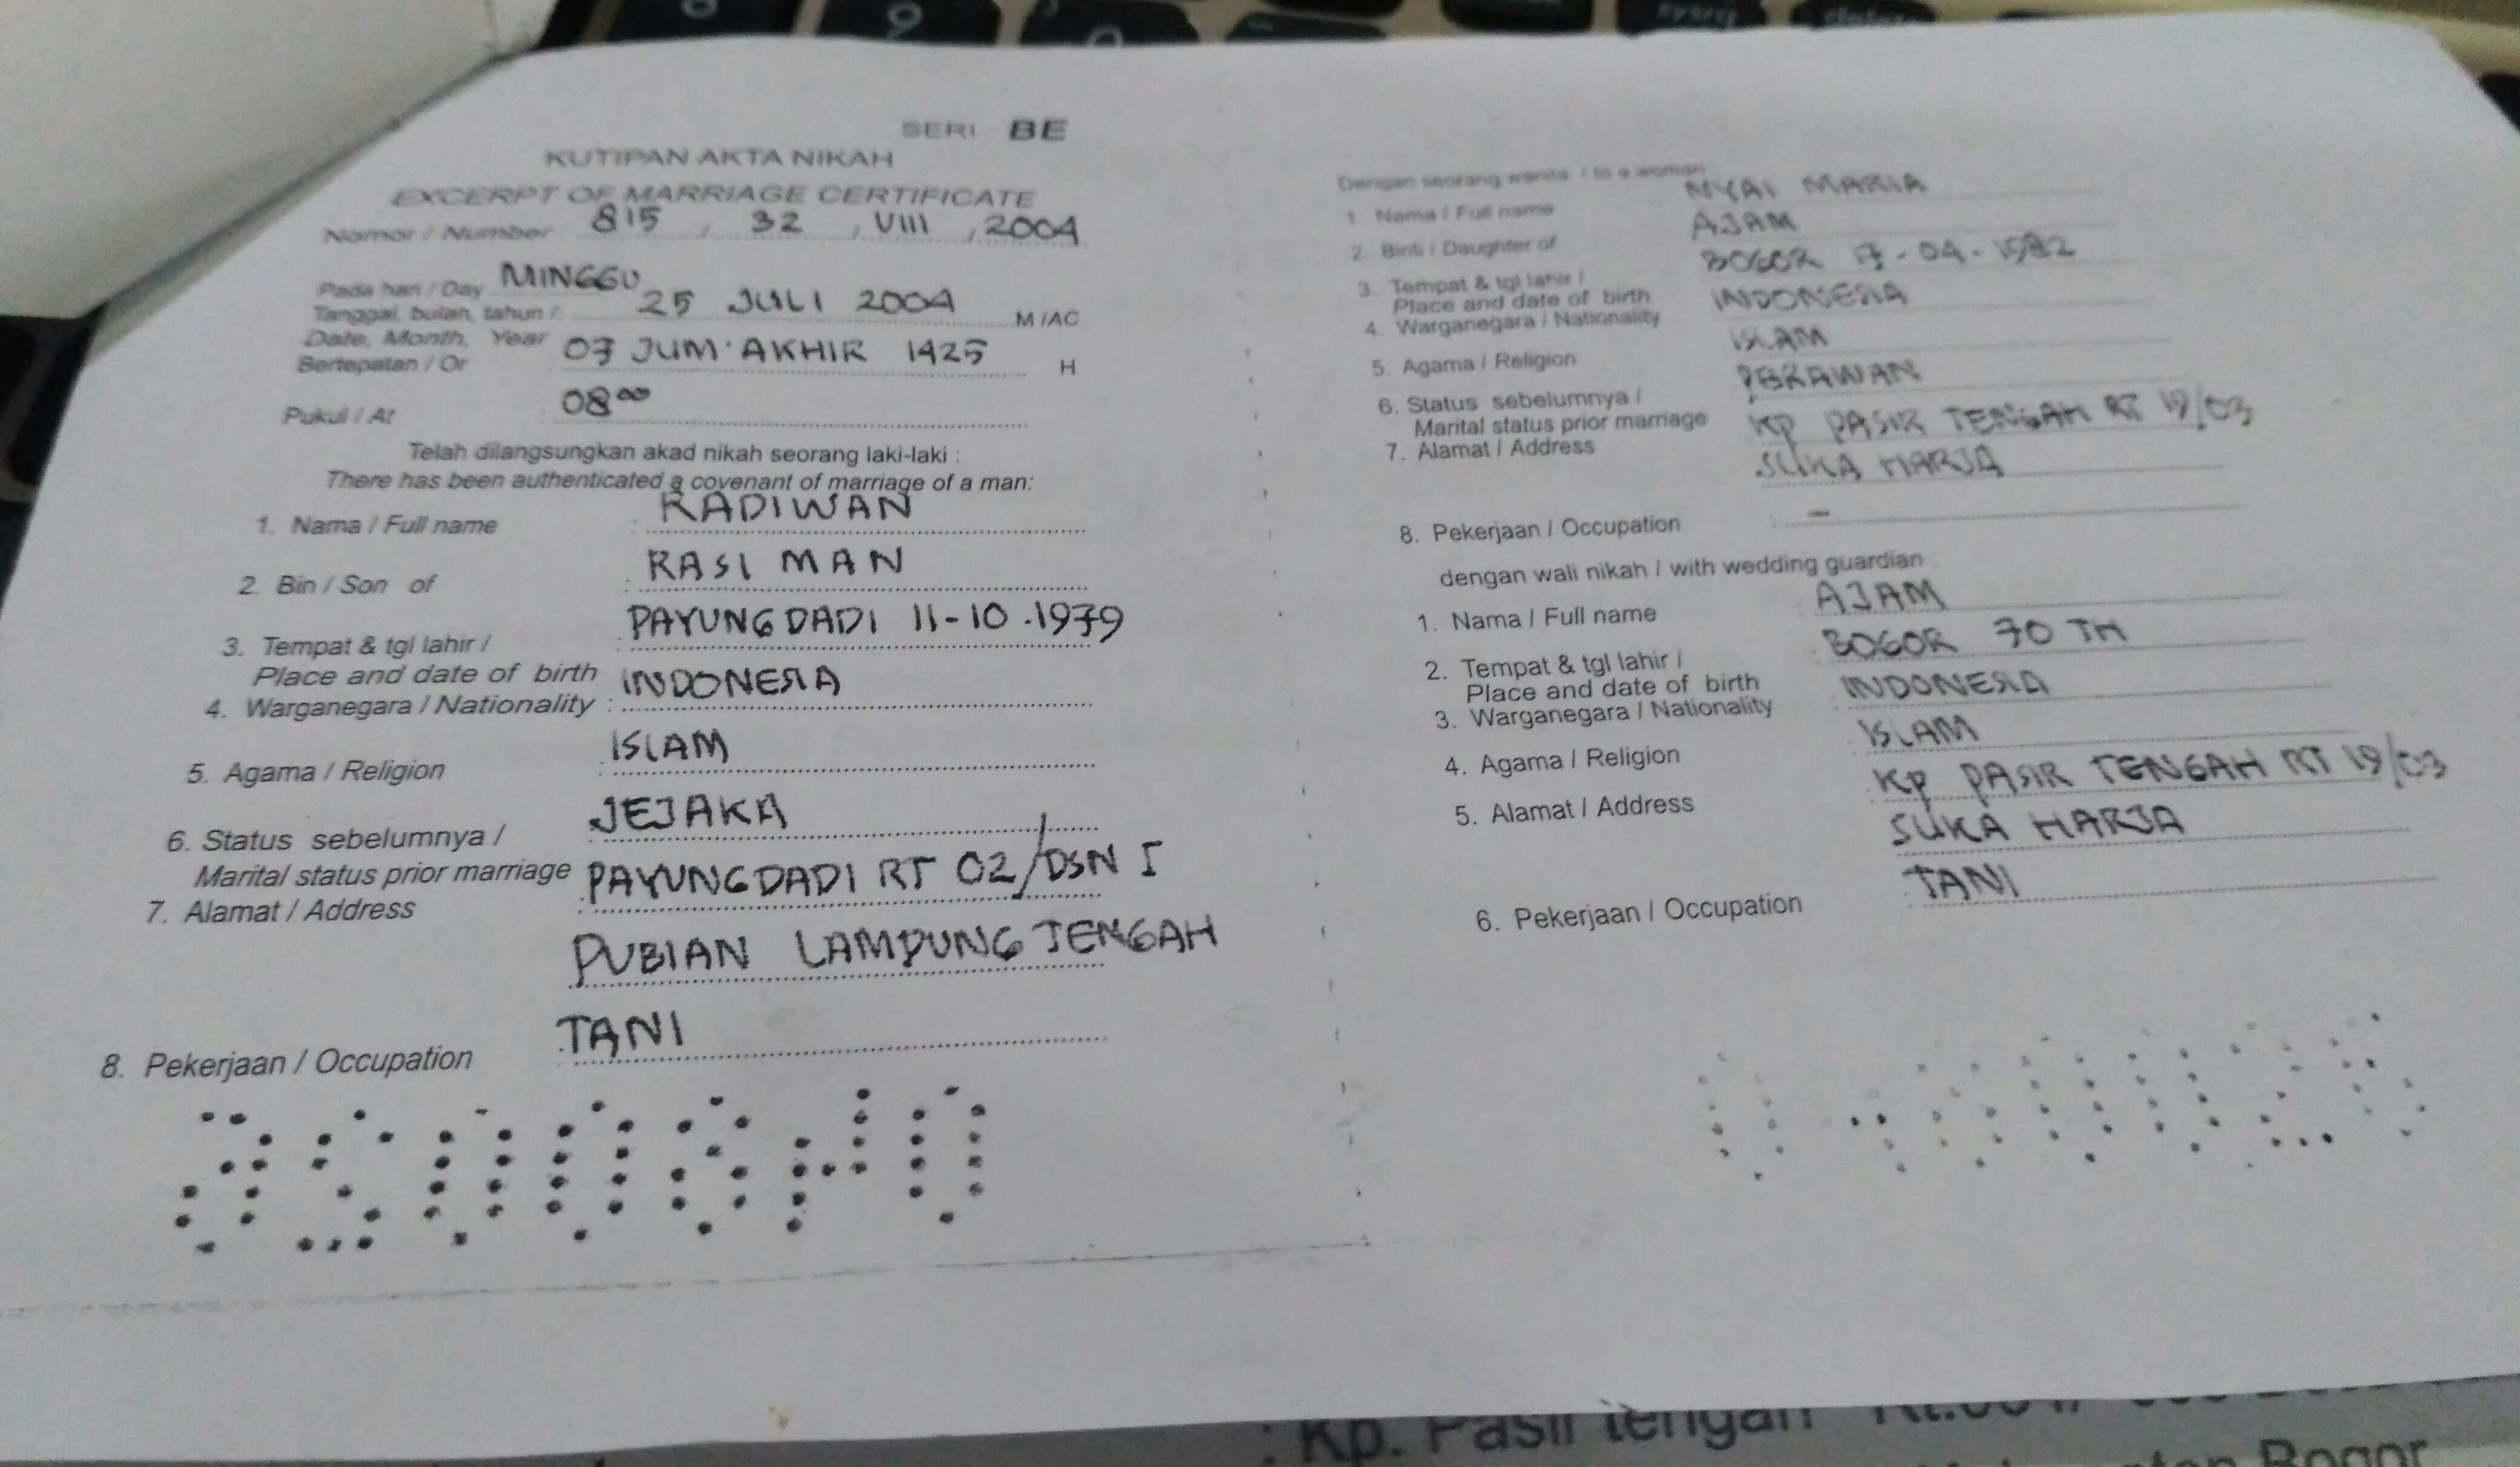 SERI BE
KUTIPAN AKTA NIKAH
EXCERPT OF MARRIAGE CERTIFICATE
Nomor / Number 815 / 32 / VIII / 2004
Pada hari / Day MINGGU
Tanggal, bulan, tahun / 25 JULI 2004 M / AC
Date, Month, Year
Bertepatan / Or 07 JUM. AKHIR 1425 H
Pukul / At 08 00
Telah dilangsungkan akad nikah seorang laki-laki :
There has been authenticated a covenant of marriage of a man:
1. Nama / Full name : RADIWAN
2. Bin / Son of : RASI MAN
3. Tempat & tgl lahir / : PAYUNG DADI 11-10.1979
Place and date of birth
4. Warganegara / Nationality : INDONESIA
5. Agama / Religion : ISLAM
6. Status sebelumnya / : JEJAKA
Marital status prior marriage
7. Alamat / Address : PAYUNG DADI RT 02/DSN I
PUBIAN LAMPUNG TENGAH
8. Pekerjaan / Occupation : TANI
Dengan seorang wanita / to a woman
1. Nama / Full name NYAI MARIA
2. Binti / Daughter of AJAM
3. Tempat & tgl lahir / BOGOR -04-
Place and date of birth
4. Warganegara / Nationality INDONESIA
5. Agama / Religion ISLAM
6. Status sebelumnya / PERAWAN
Marital status prior marriage
7. Alamat / Address KP PASIR TENGAH RT 19/03
SUKA HARJA
8. Pekerjaan / Occupation : -
dengan wali nikah / with wedding guardian :
1. Nama / Full name AJAM
2. Tempat & tgl lahir / BOGOR 70 TH
Place and date of birth
3. Warganegara / Nationality INDONESIA
4. Agama / Religion ISLAM
5. Alamat / Address KP PASIR TENGAH RT 19/03
SUKA HARJA
6. Pekerjaan / Occupation TANI
: Kp. Pasir tengah
Bogor